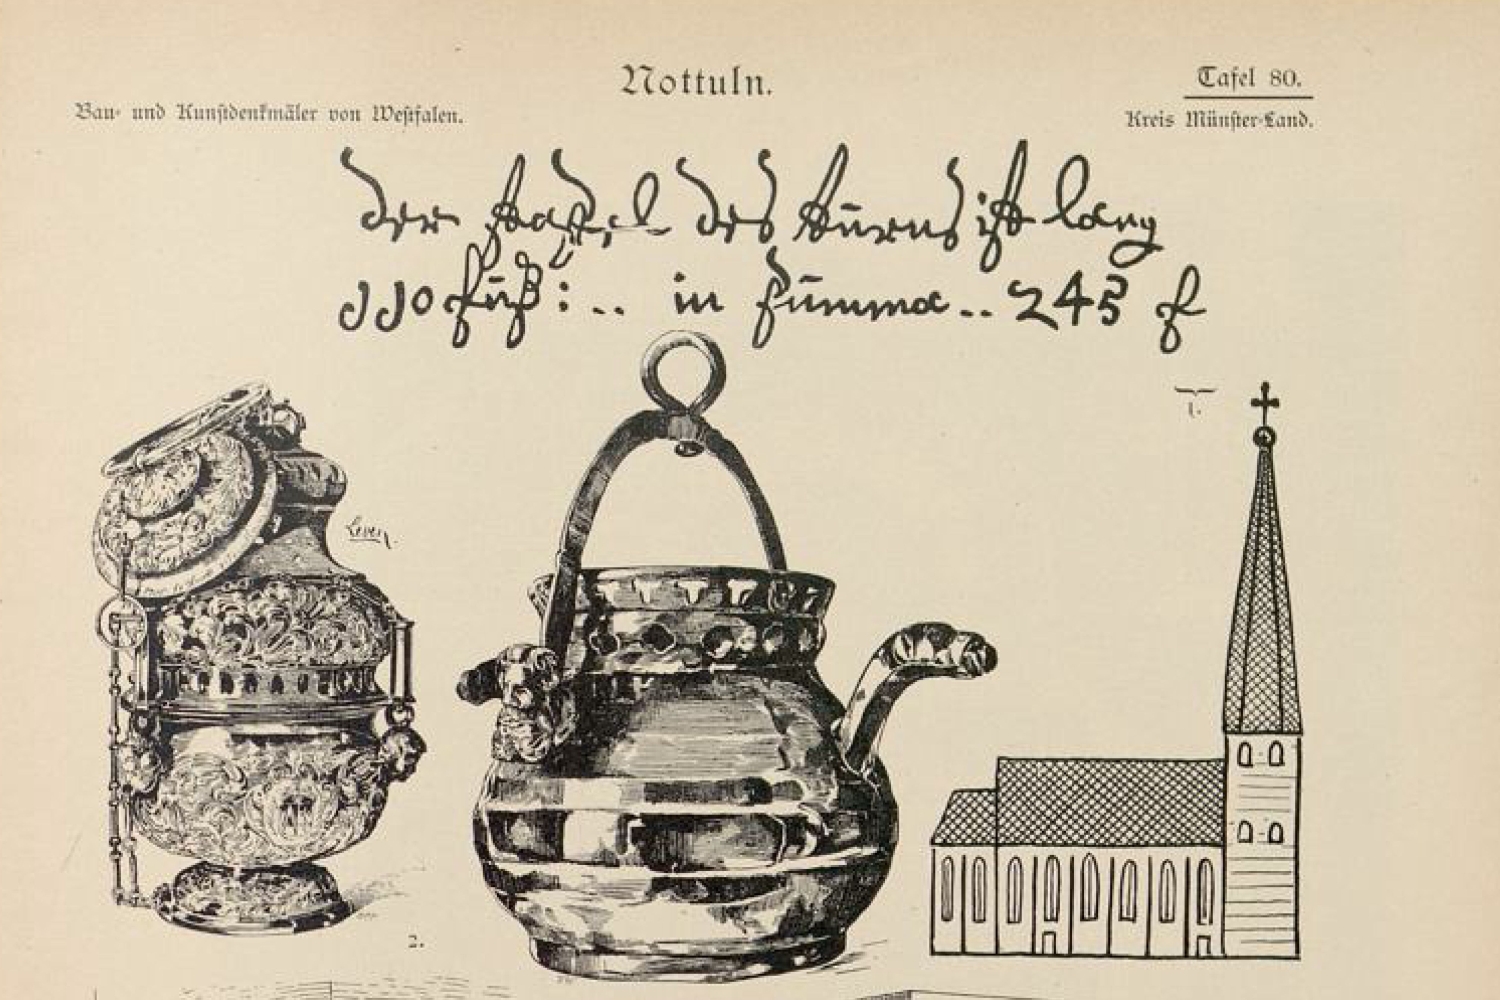 Nottuln.
Tafel 80.
Bau- und Kunstdenkmäler von Westfalen.
Kreis Münster-Land.
der stapel des turns ist lang
110 fuß : .. in summa .. 245 f
1.
2.